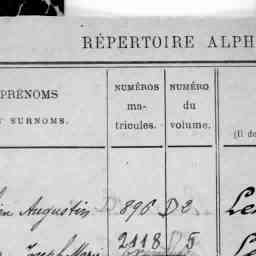 RÉPERTOIRE ALPH
PRÉNOMS
SURNOMS.
NUMÉROS
ma-
tricules.
NUMÉRO
du
volume.
(Il de
Augustin 896 D 2
2118 D 5